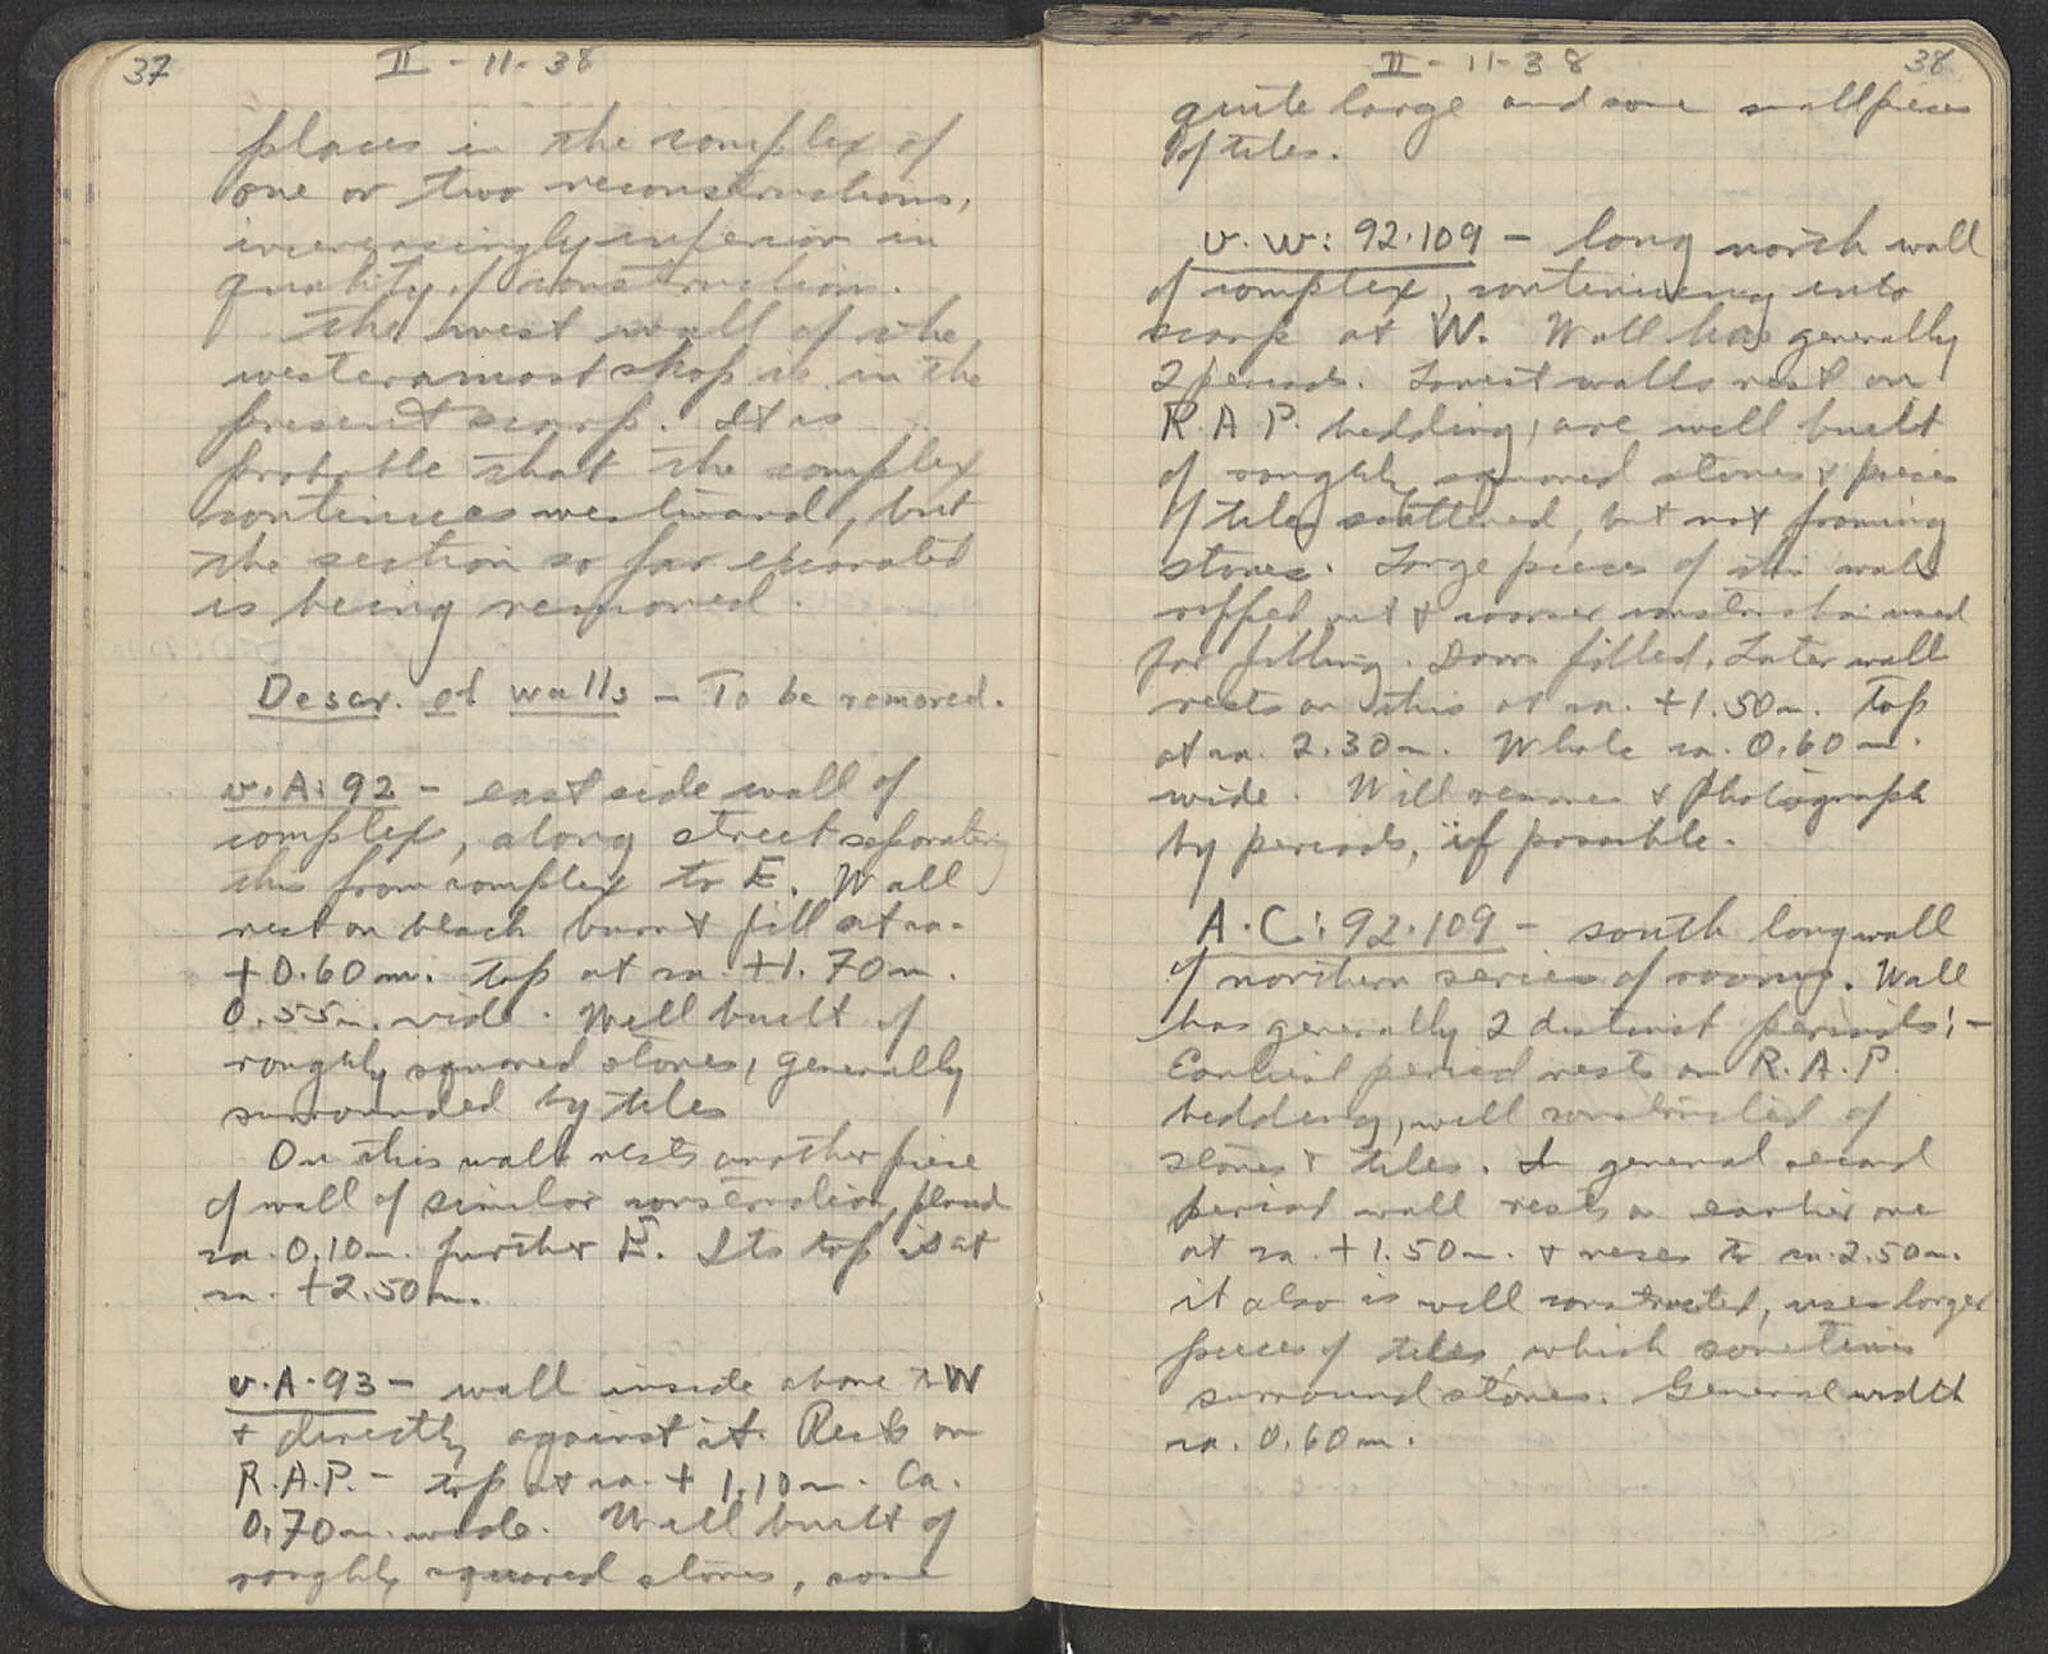 37
II - 11-38
places in the complex of
one or two reconstructions,
increasingly inferior in
quality of construction.
The west wall of the
westernmost shop is in the
present scarp. It is
probable that the complex
continues westward, but
the section so far excavated
is being removed.
Descr. of walls - To be removed.
v.A: 92 - east side wall of
complex, along street separating
this from complex to E. Wall
rest on black burnt fill at ca.
+0.60m. top at ca. +1.70m.
0.55m. wide. Well built of
roughly squared stones, generally
surrounded by tiles
On this wall rests another piece
of wall of similar construction, placed
ca. 0.10m. further E. Its top is at
ca. +2.50m.
v.A.93 - wall inside above to W
+ directly against it. Rests on
R.A.P. - top at ca. + 1.10m. Ca.
0.70m. wide. Well built of
roughly squared stones, some
II - 11-38
38
quite large and some small pieces
of tiles.
v.w: 92.109 - long north wall
of complex, continuing into
scarp at W. Wall has generally
2 periods. Lowest walls rest on
R.A.P. bedding, are well built
of roughly squared stones + pieces
of tiles scattered, but not framing
stones. Large pieces of this wall
ripped out + coarser construction used
for filling. Doors filled. Later wall
rests on this at ca. +1.50m. top
at ca. 2.30m. Whole ca. 0.60m.
wide. Will remove + photograph
by periods, if possible.
A.C: 92.109 - south long wall
of northern series of rooms. Wall
has generally 2 distinct periods: -
Earliest period rests on R.A.P.
bedding, well constructed of
stones + tiles. In general second
period wall rests on earlier one
at ca. +1.50m. + rises to ca. 2.50m.
it also is well constructed, uses larger
pieces of tiles, which sometimes
surround stones. General width
ca. 0.60m.